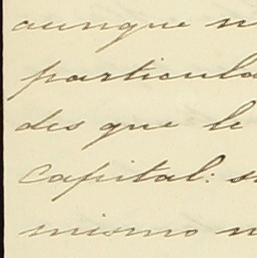 aunque
particula
des que le
capital:
mismo